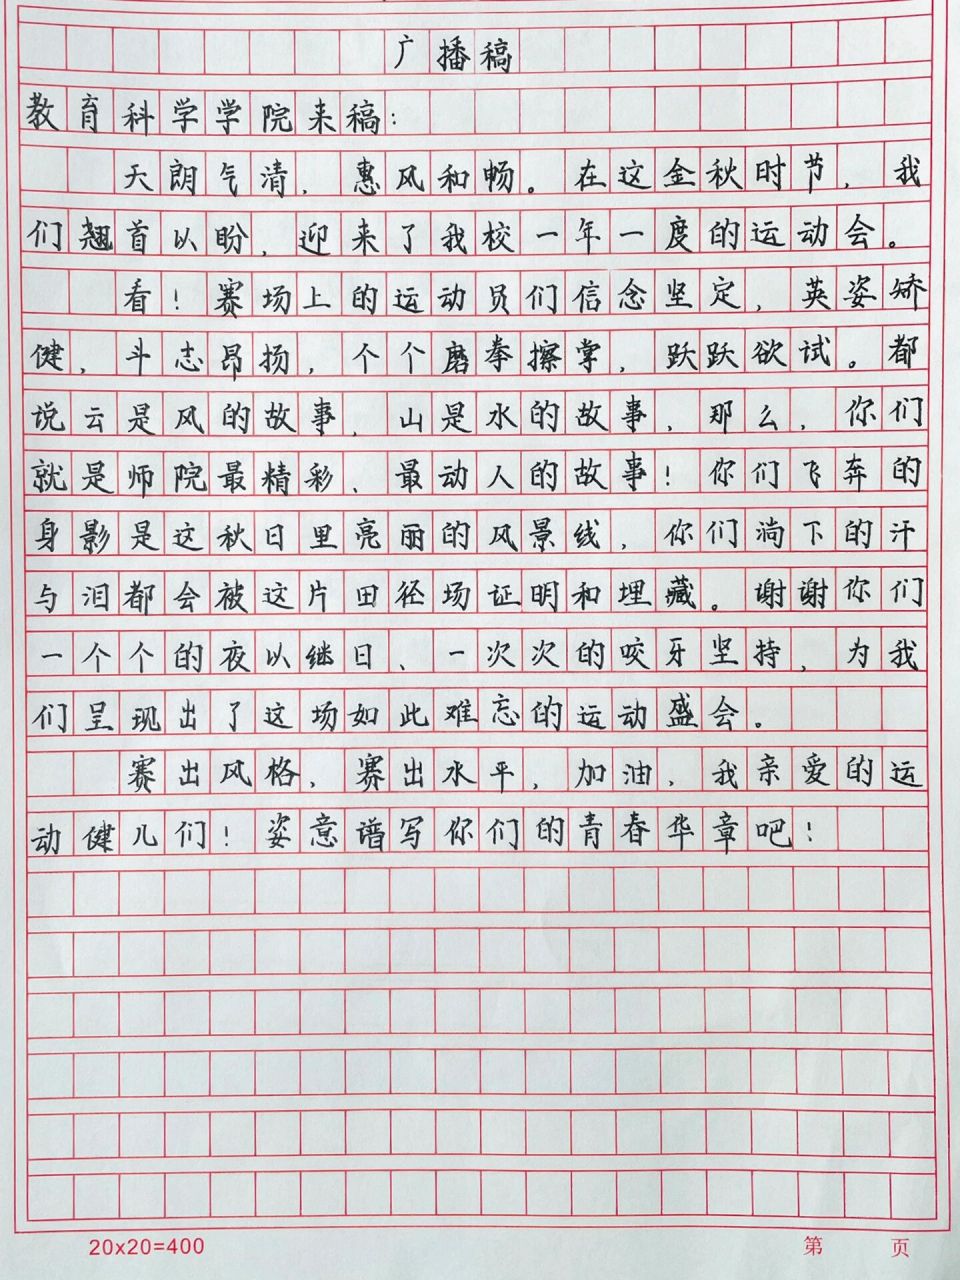 广播稿
教育科学学院来稿：
天朗气清，惠风和畅。在这金秋时节，我
们翘首以盼，迎来了我校一年一度的运动会。
看！赛场上的运动员们信念坚定，英姿矫
健，斗志昂扬，个个磨拳擦掌，跃跃欲试。都
说云是风的故事，山是水的故事，那么，你们
就是师院最精彩、最动人的故事！你们飞奔的
身影是这秋日里亮丽的风景线，你们淌下的汗
与泪都会被这片田径场证明和埋藏。谢谢你们
一个个的夜以继日、一次次的咬牙坚持，为我
们呈现出了这场如此难忘的运动盛会。
赛出风格，赛出水平，加油，我亲爱的运
动健儿们！姿意谱写你们的青春华章吧！
20x20=400
第 页